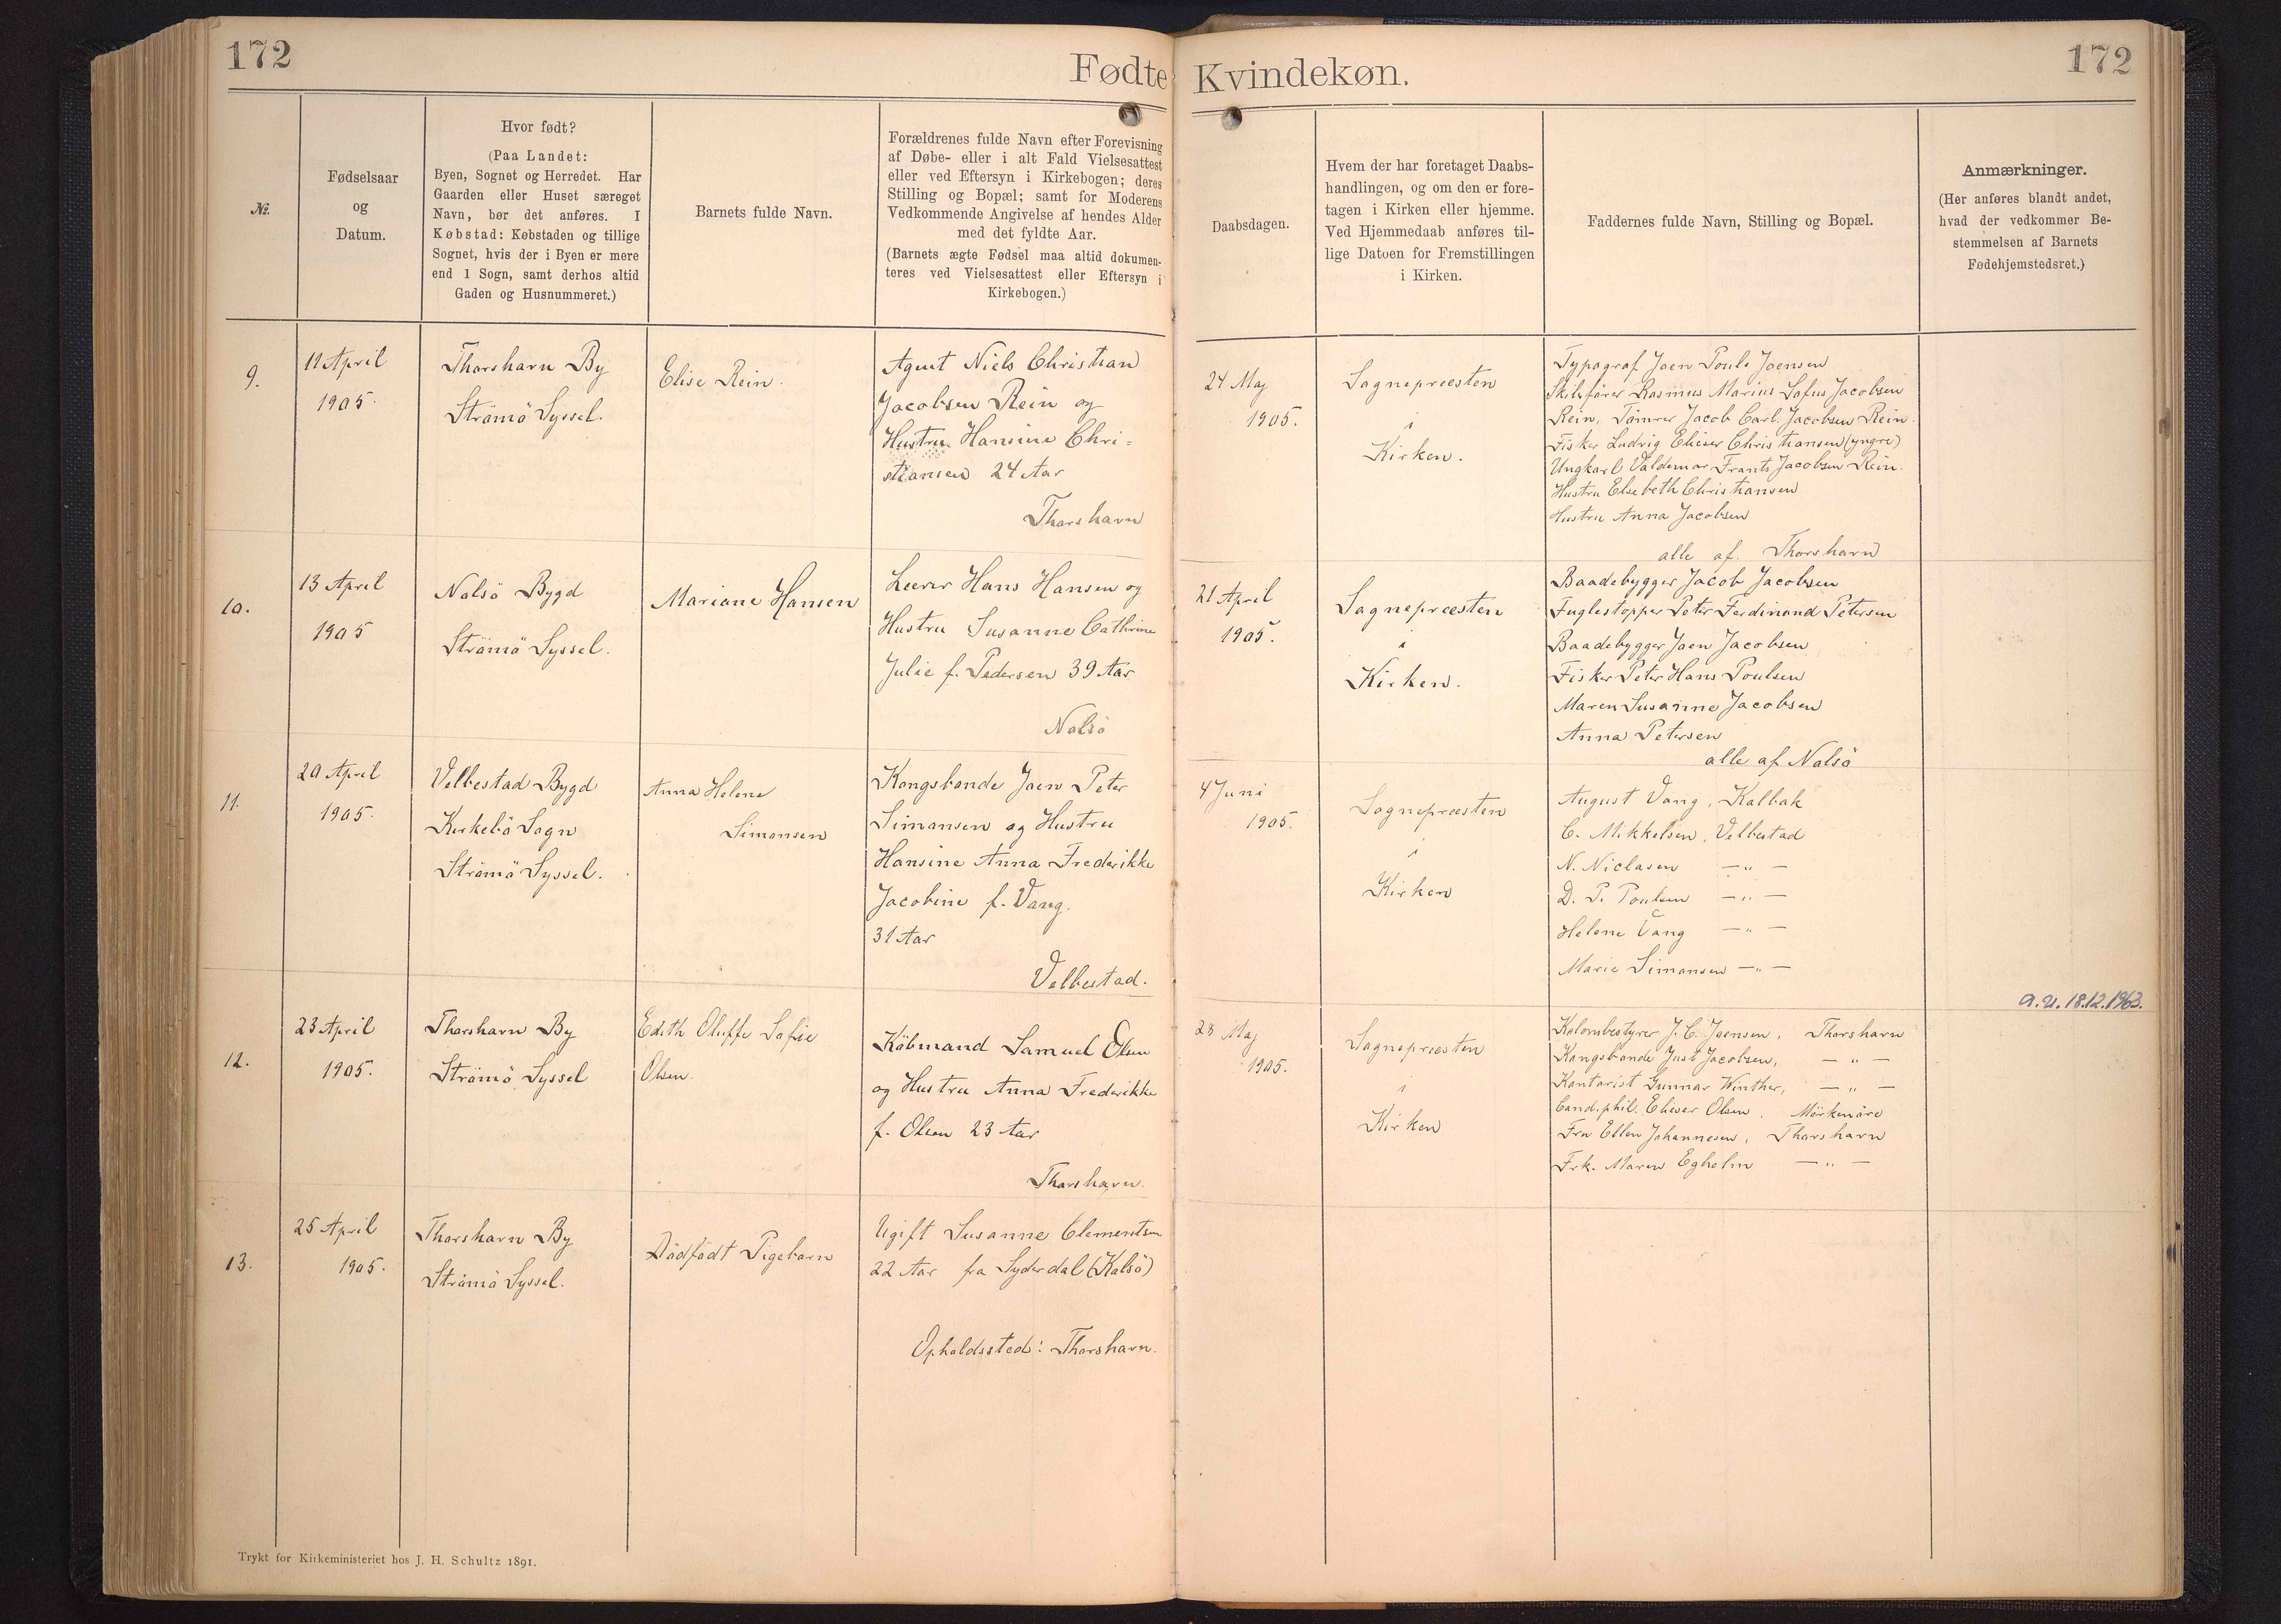 172
Fødte
Kvindekøn.
172
№
Fødselsaar
og
Datum.
Hvor født?
(Paa Landet:
Byen, Sognet og Herredet. Har
Gaarden eller Huset særeget
Navn, bør det anføres. I
Købstad: Købstaden og tillige
Sognet, hvis der i Byen er mere
end 1 Sogn, samt derhos altid
Gaden og Husnummeret.)
Barnets fulde Navn.
Forældrenes fulde Navn efter Forevisning
af Døbe- eller i alt Fald Vielsesattest
eller ved Eftersyn i Kirkebogen; deres
Stilling og Bopæl; samt for Moderens
Vedkommende Angivelse af hendes Alder
med det fyldte Aar.
(Barnets ægte Fødsel maa altid dokumen-
teres ved Vielsesattest eller Eftersyn i
Kirkebogen.)
Daabsdagen.
Hvem der har foretaget Daabs-
handlingen, og om den er fore-
tagen i Kirken eller hjemme.
Ved Hjemmedaab anføres til-
lige Datoen for Fremstillingen
i Kirken.
Faddernes fulde Navn, Stilling og Bopæl.
Anmærkninger.
(Her anføres blandt andet,
hvad der vedkommer Be-
stemmelsen af Barnets
Fødehjemstedsret.)
9.
11 April
1905.
Thorshavn By
Strömö Syssel.
Elise Rein.
Agent Niels Christian
Jacobsen Rein og
Hustru Hansine Chri-
stiansen 24 Aar
Thorshavn
24 Maj
1905.
Sognepræsten
i
Kirken.
Typograf Joen Pouls Joensen
Skibsfører Rasmus Marius Sofus Jacobsen
Rein, Tömrer Jacob Carl Jacobsen Rein.
Fisker Ludvig Elieser Christiansen (yngre)
Ungkarl Valdemar Frants Jacobsen Rein.
Hustru Elsebeth Christiansen
Hustru Anna Jacobsen
alle af Thorshavn
10.
13 April
1905
Nolsö Bygd
Strömö Syssel.
Mariane Hansen
Leerer Hans Hansen og
Hustru Susanne Cathrine
Julie f. Pedersen 39 Aar
Nolsö
21 April
1905.
Sognepræsten
i
Kirken.
Baadebygger Jacob Jacobsen
Fuglestopper Peter Ferdinand Petersen
Baadebygger Joen Jacobsen
Fisker Peter Hans Poulsen
Maren Susanne Jacobsen
Anna Petersen
alle af Nolsö
11.
20 April
1905.
Velbestad Bygd
Kirkebö Sogn
Strömö Syssel.
Anna Helene
Simonsen
Kongsbonde Joen Peter
Simonsen og Hustru
Hansine Anna Frederikke
Jacobine f. Vang.
31 Aar
Velbestad.
4 Juni
1905.
Sognepræsten
i
Kirken
August Vang, Kalbak
C. Mikkelsen, Velbestad
N. Niclasen — " —
D. P. Poulsen — " —
Helene Vang — " —
Marie Simonsen — " —
a.u. 18.12.1963.
12.
23 April
1905.
Thorshavn By
Strömö Syssel
Edith Oluffe Sofie
Olsen.
Köbmand Samuel Olsen
og Hustru Anna Frederikke
f. Olsen 23 Aar
Thorshavn.
28 Maj
1905.
Sognepræsten
i
Kirken
Kolonbestyrer J. C. Joensen, Thorshavn
Kongsbonde Just Jacobsen, — " —
Kontorist Gunnar Winther, — " —
Cand. phil. Elieser Olsen. Mörkenöre
Fru Ellen Johannesen, Thorshavn
Frk. Maren Egholm — " —
13.
25 April
1905.
Thorshavn By
Strömö Syssel.
Dödfödt Pigebarn
Ugift Susanne Clementsen
22 Aar fra Syderdal (Kalsö)
Opholdssted: Thorshavn.
Trykt for Kirkeministeriet hos J. H. Schultz 1891.